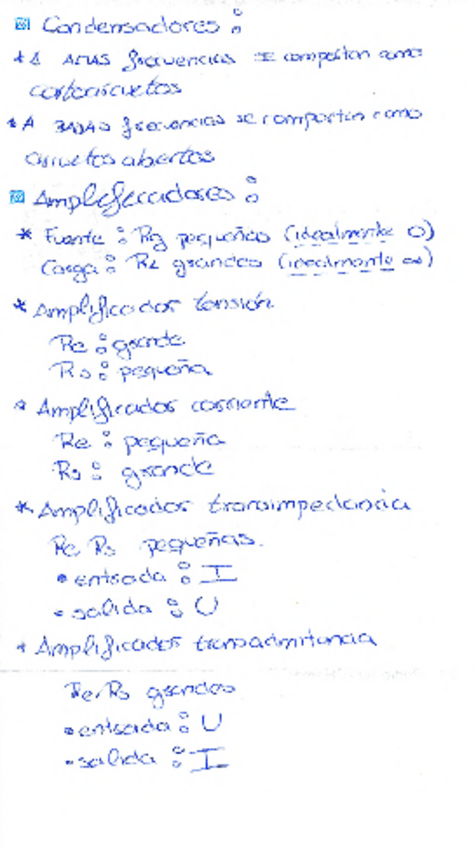 Condensadores:
* A ALTAS frecuencias se comportan como
cortocircuitos
* A BAJAS frecuencias se comportan como
circuitos abiertos
Amplificadores:
* Fuente: Rg pequeñas (idealmente 0)
Carga: RL grandes (idealmente ∞)
* Amplificador tensión
Re: grande
Rs: pequeña
* Amplificador corriente
Re: pequeña
Rs: grande
* Amplificador transimpedancia
Re Rs pequeñas.
• entrada: I
• salida: U
* Amplificador transadmitancia
Re Rs grandes
• entrada: U
• salida: I